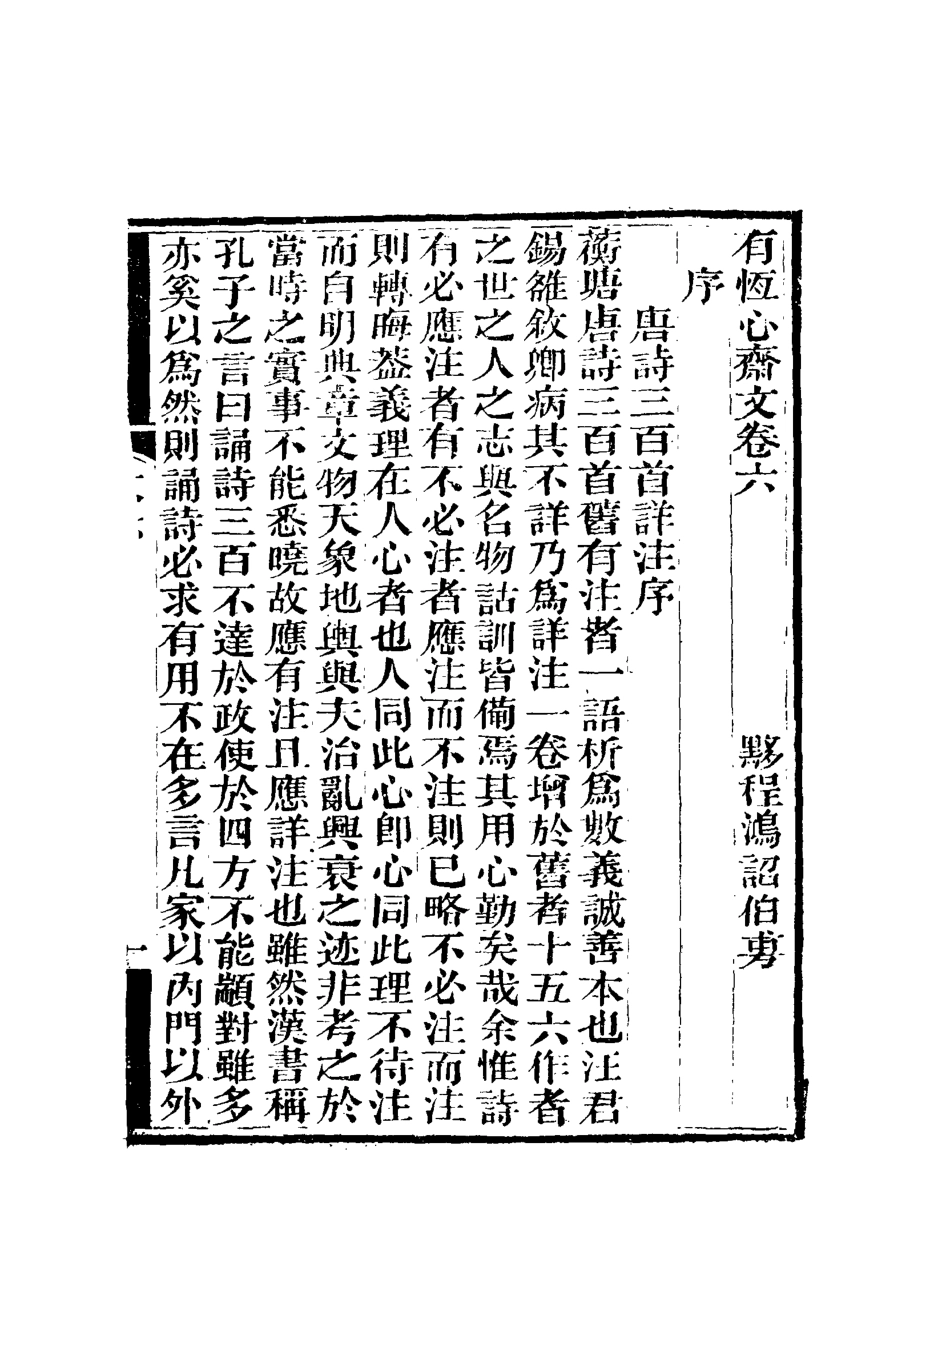 有恆心齋文卷六 黟程鴻詔伯旉
序
唐詩三百首詳注序
蘅塘唐詩三百首舊有注者一語析爲數義誠善本也汪君
錫雒敘卿病其不詳乃爲詳注一卷增於舊者十五六作者
之世之人之志與名物詁訓皆備焉其用心勤矣哉余惟詩
有必應注者有不必注者應注而不注則已略不必注而注
則轉晦葢義理在人心者也人同此心卽心同此理不待注
而自明典章文物天象地輿與夫治亂興衰之迹非考之於
當時之實事不能悉曉故應有注且應詳注也雖然漢書稱
孔子之言曰誦詩三百不達於政使於四方不能顓對雖多
亦奚以爲然則誦詩必求有用不在多言凡家以內門以外
一